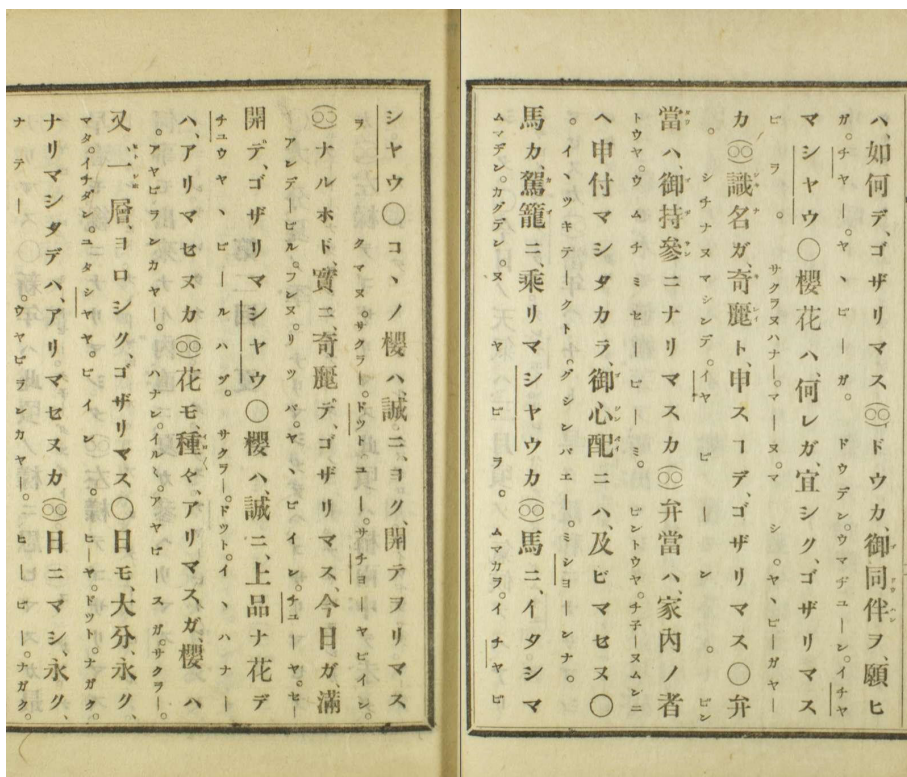 ハ、如何デ、ゴザリマス(〇〇)ドウカ、御同伴ヲ、願ヒ
ガ。チヤー。ヤヽビーガ。ドウデン。ウマヂユーン。イチヤ
マシヤウ〇櫻花ハ、何レガ、宜シク、ゴザリマス
ビヲ。サクラヌハナー。マーヌ。マシ。ヤヽビーガヤー
カ(〇〇)識名ガ、奇麗ト、申スヿデ、ゴザリマス〇弁
。シチナヌマシンデ。イヤビーン。ビン
當ハ、御持參ニナリマスカ(〇〇)弁當ハ、家内ノ者
トウヤ。ウムチミセービーミ。ビントウヤ。チ子ーヌムンニ
ヘ申付マシタカラ、御心配ニハ、及ビマセヌ〇
。イヽツキテークトグシンバエー。ミシヨーンナ。
馬カ、駕籠ニ、乘リマシヤウカ(〇〇)馬ニ、イタシマ
ムマデン。カグデン。ヌヤビラ。ムマカラ。イチヤビ
シヤウ〇コヽノ櫻ハ、誠ニ、ヨク、開テヲリマス
ラ クマヌ。サクラー。ドツトユー。サチヨーヤビイン。
(〇〇)ナルホド、實ニ、奇麗デ、ゴザリマス、今日ガ、滿
アンデービル。フンヌ。リツパ。ヤヽビイン。チユーヤ。セー
開デ、ゴザリマシヤウ〇櫻ハ、誠ニ、上品ナ花デ
チユウヤヽビールハヅ。サクラー。ドツト。イヽハナー
ハ、アリマセヌカ(〇〇)花モ、種々、アリマスガ、櫻ハ
。アヤビランカヤー。ハナン。イルミ。アヤビースガ。サクラー。
又、一層、ヨロシク、ゴザリマス〇日モ、大分、永ク、
マタ。イチダン。ユタシヤヤビイン。ヒーヤ。ドツト。ナガク。
ナリマシタデハ、アリマセヌカ(〇〇)日ニマシ、永ク、
ナテー。ウヤビランカヤー。ヒービー。ナガク。